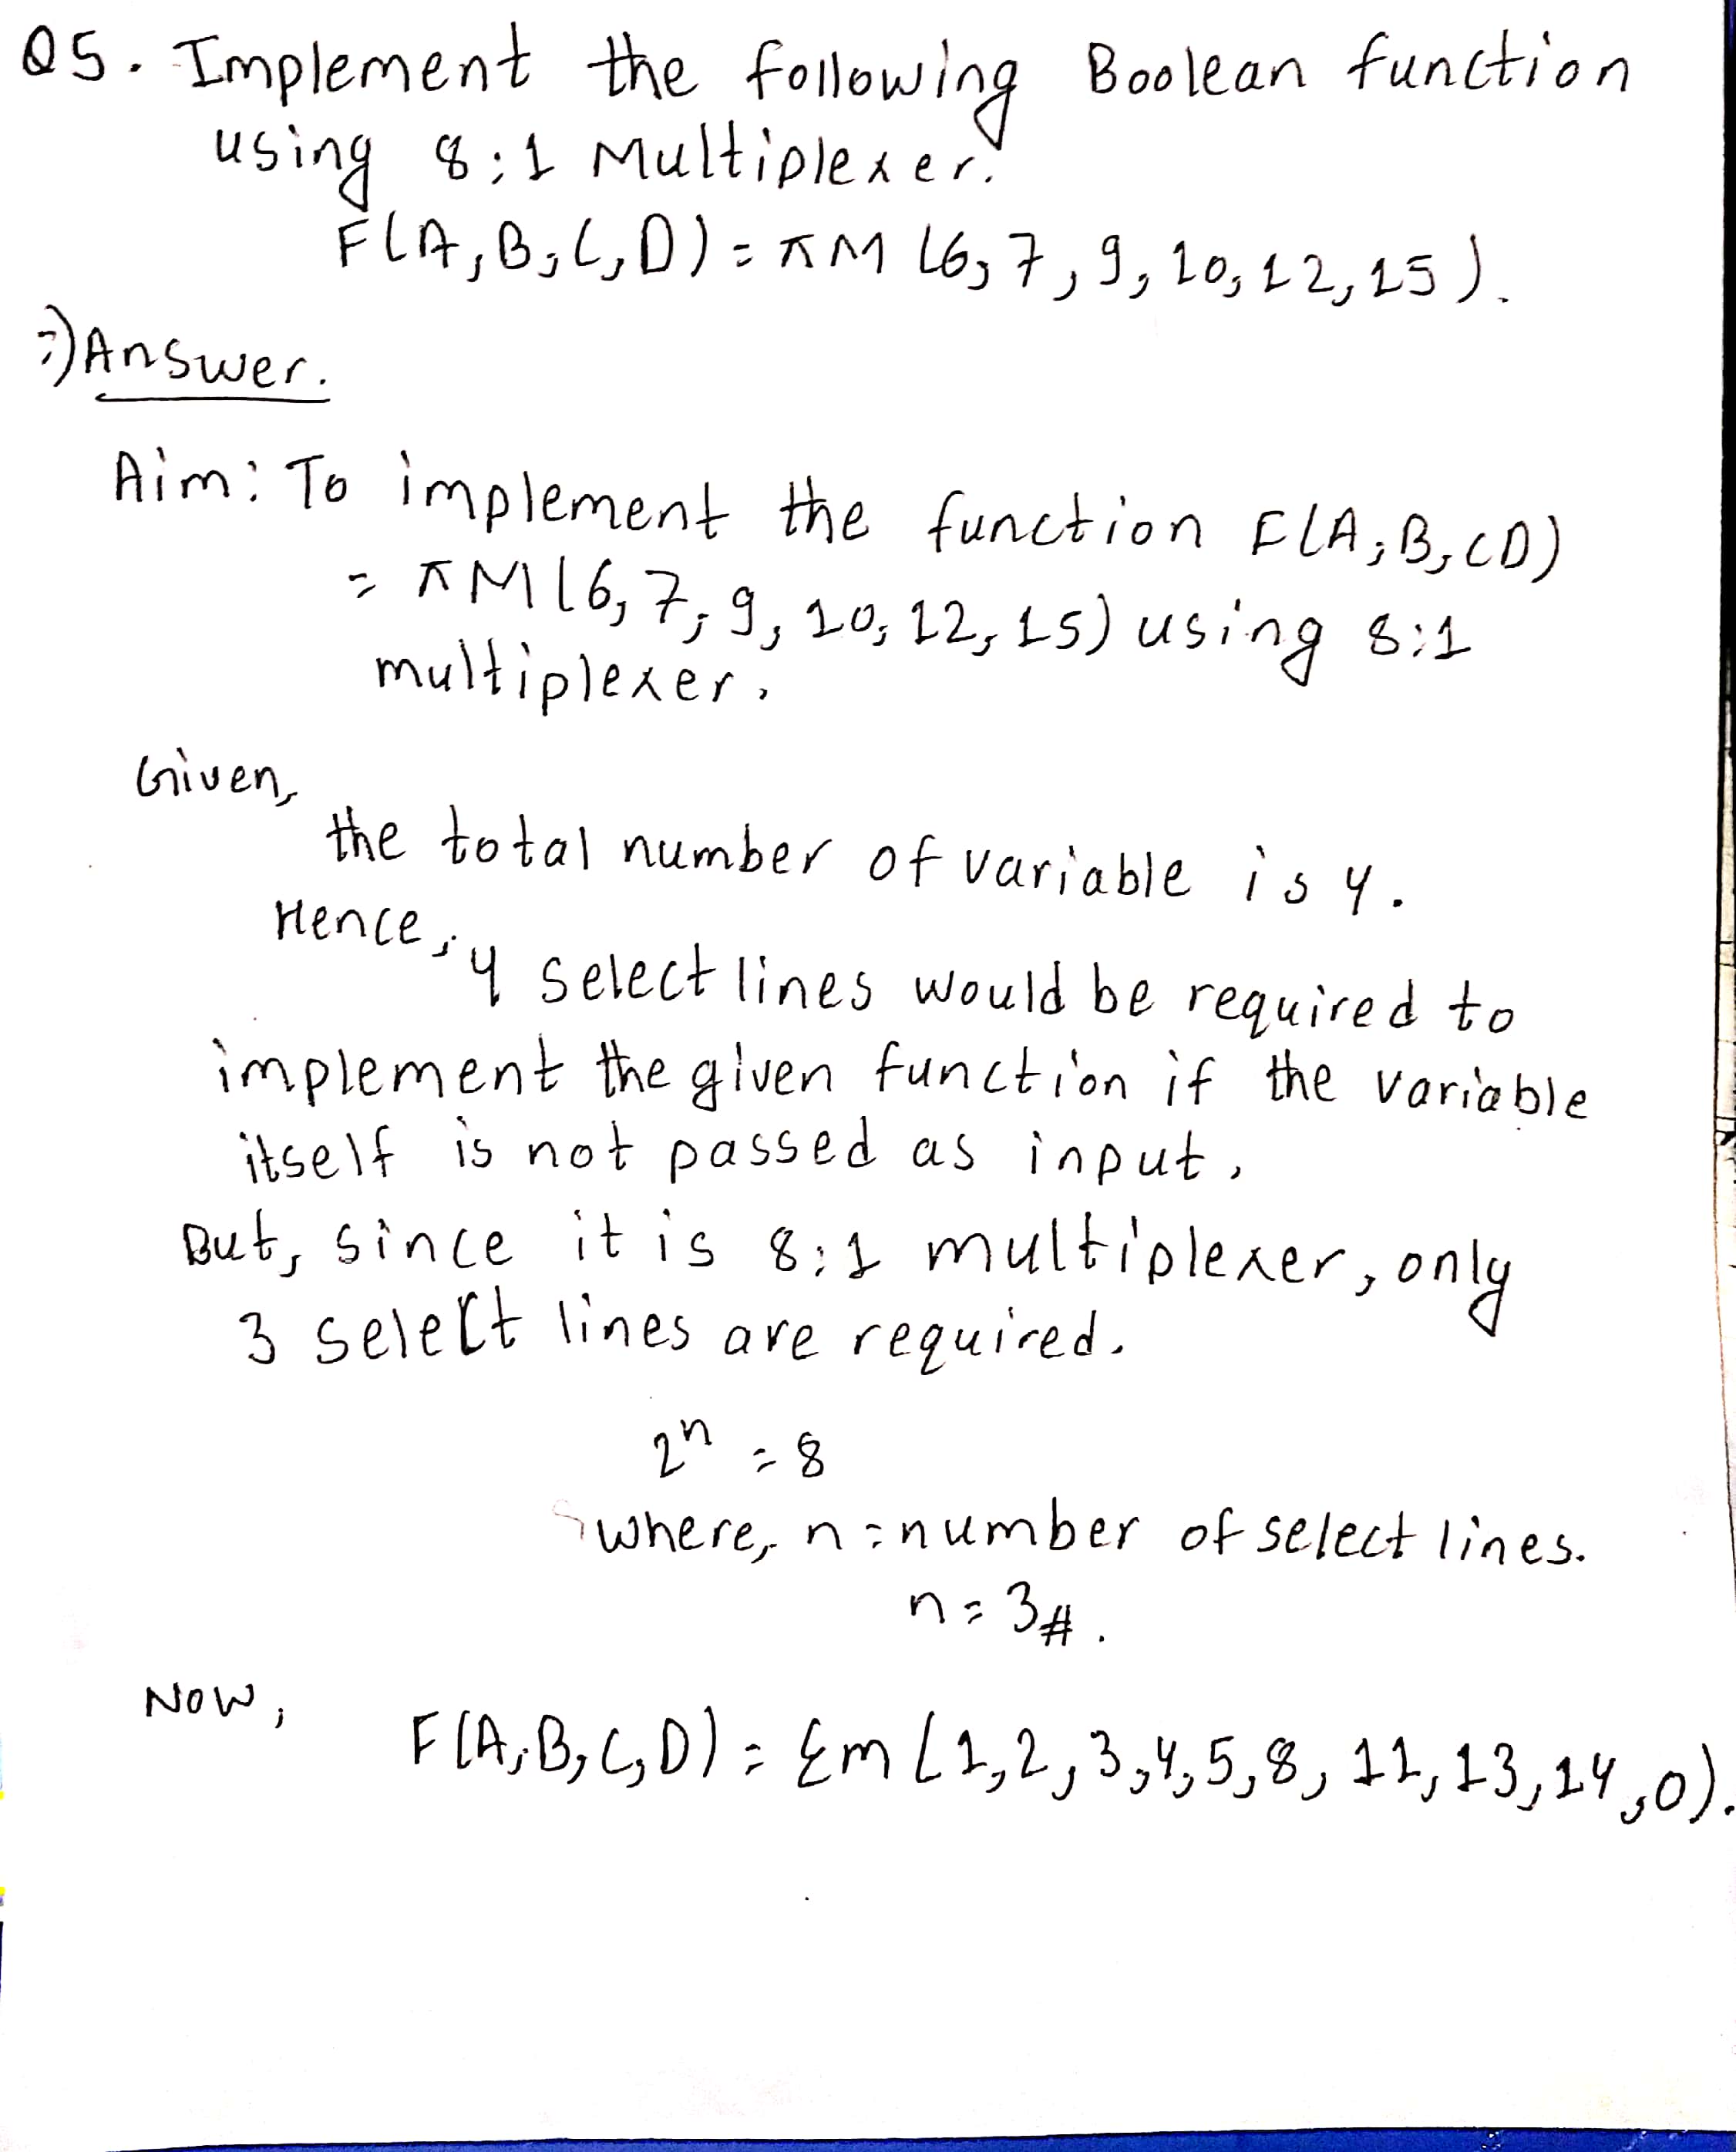 Q5. Implement the following Boolean function
using 8:1 Multiplexer.
F(A,B,C,D) = πM (6,7,9,10,12,15).
⇒) Answer.
Aim: To implement the function F(A,B,CD)
= πM(6,7,9,10,12,15) using 8:1
multiplexer.
Given,
the total number of variable is 4.
Hence,
4 select lines would be required to
implement the given function if the variable
itself is not passed as input.
But, since it is 8:1 multiplexer, only
3 select lines are required.
2ⁿ = 8
where, n = number of select lines.
n = 3#.
Now,
F(A,B,C,D) = Σm (1,2,3,4,5,8,11,13,14,0).